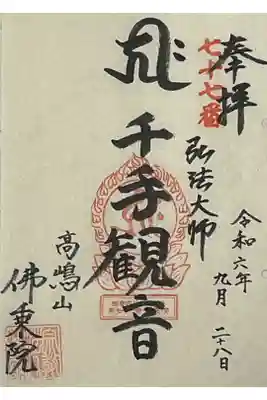 奉拝
七十七番
弘法大師
令和六年
九月
二十八日
千手観音
高嶋山
佛乗院